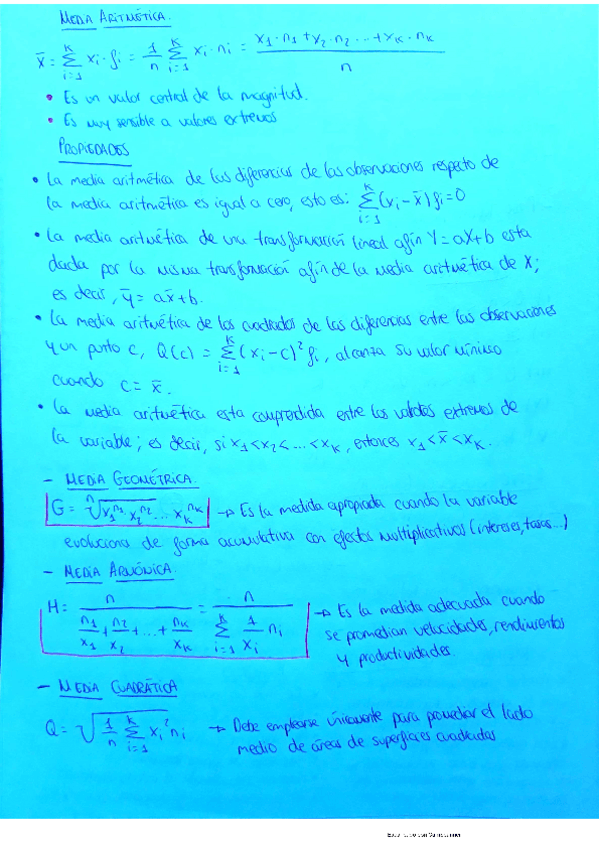 MEDIA ARITMÉTICA.
x̄ = Σ_{i=1}^{K} xi · fi = 1/n Σ_{i=1}^{K} xi · ni = (x1 · n1 + x2 · n2 ... + xK · nK) / n
• Es un valor central de la magnitud.
• Es muy sensible a valores extremos
PROPIEDADES
• La media aritmética de las diferencias de las observaciones respecto de
la media aritmética es igual a cero, esto es: Σ_{i=1}^{K} (xi - x̄) fi = 0
• La media aritmética de una transformación lineal afín Y = aX + b esta
dada por la misma transformación afín de la media aritmética de X;
es decir, ȳ = ax̄ + b.
• La media aritmética de los cuadrados de las diferencias entre las observaciones
y un punto c, Q(c) = Σ_{i=1}^{K} (xi - c)² fi, alcanza su valor mínimo
cuando c = x̄.
• La media aritmética esta comprendida entre los valores extremos de
la variable; es decir, si x1 < x2 < ... < xK, entonces x1 < x̄ < xK.
- MEDIA GEOMÉTRICA.
G = ⁿ√(x1^n1 x2^n2 ... xK^nK) → Es la medida apropiada cuando la variable
evoluciona de forma acumulativa con efectos multiplicativos (intereses, tasas...)
- MEDIA ARMÓNICA.
H = n / (n1/x1 + n2/x2 + ... + nK/xK) = n / (Σ_{i=1}^{K} 1/xi ni) → Es la medida adecuada cuando
se promedian velocidades, rendimientos
y productividades.
- MEDIA CUADRÁTICA
Q = √(1/n Σ_{i=1}^{K} xi² ni) → Debe emplearse únicamente para promediar el lado
medio de áreas de superficies cuadradas